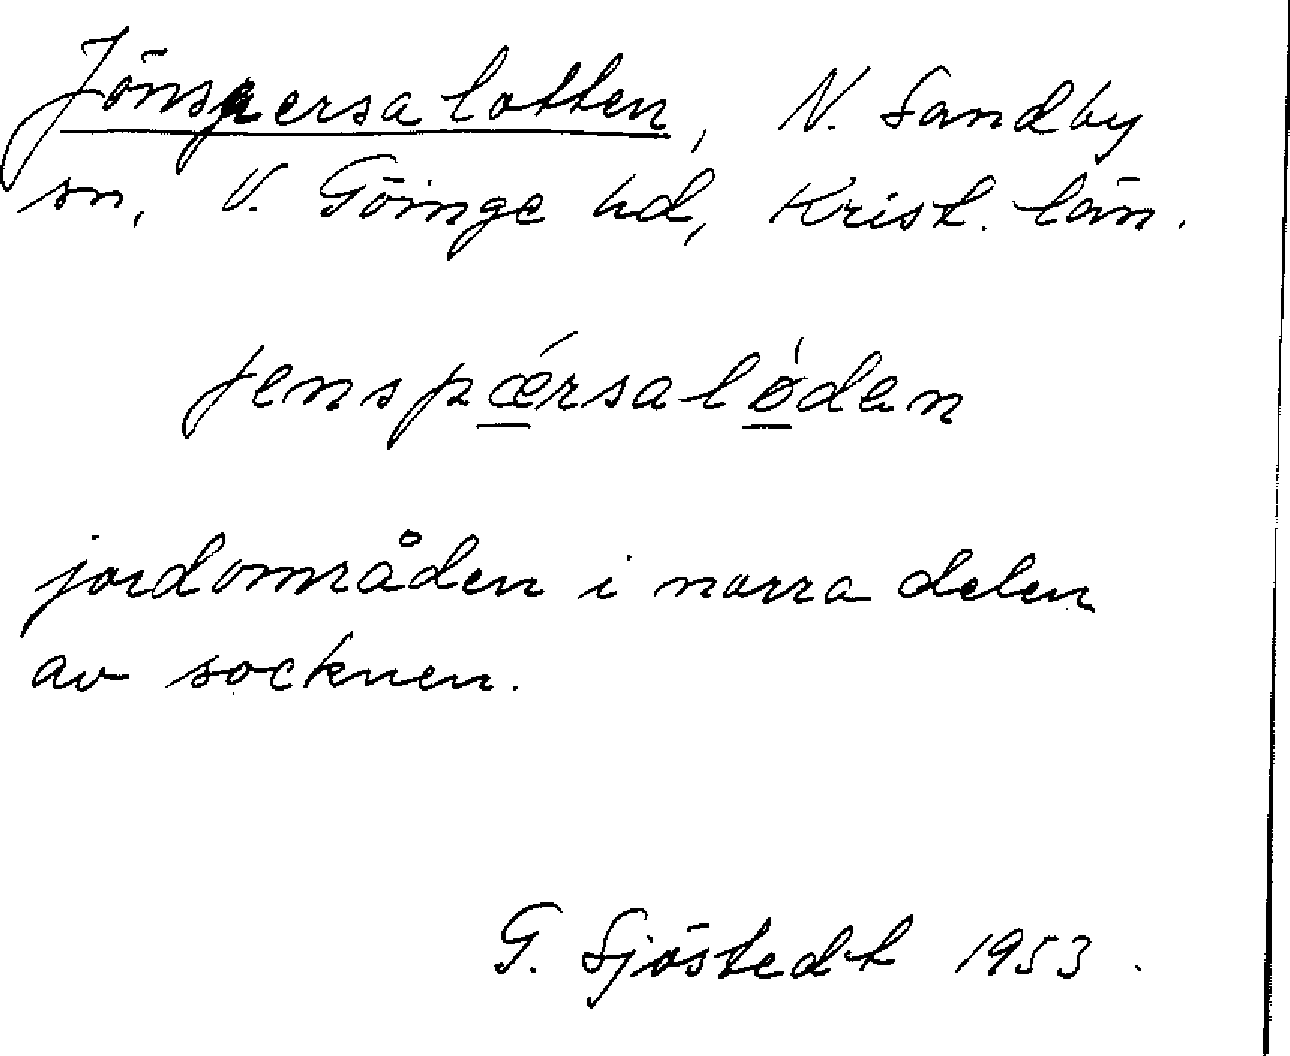 Jönspersalotten, N. Sandby
sn, V. Göinge hd, Krist. län.
jenspǽrsalǿden
jordområden i norra delen
av socknen.
G. Sjöstedt 1953.